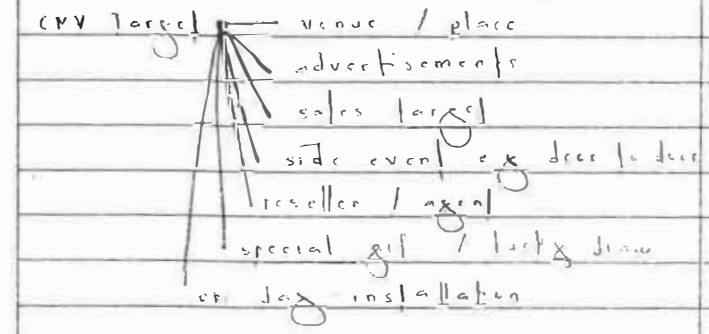 CMV Target venue / place
advertisements
sales target
side event eg door to door
reseller / agent
special gif / lucky draw
on day installation